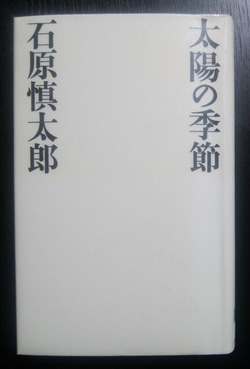 太陽の季節
石原慎太郎